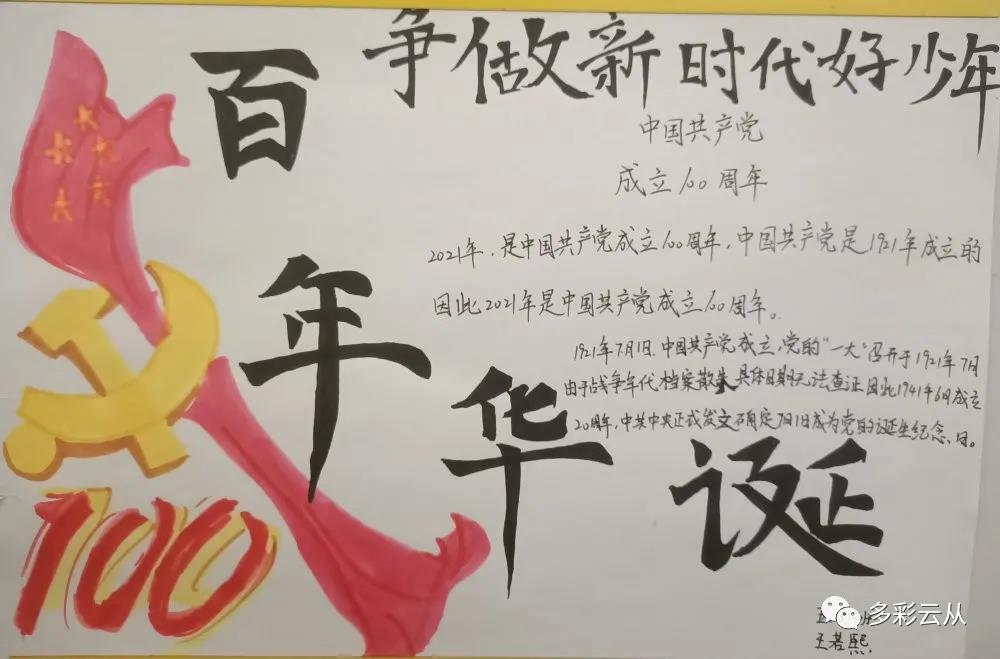 争做新时代好少年
百年华诞
中国共产党
成立100周年
2021年，是中国共产党成立100周年，中国共产党是1921年成立的
因此2021年是中国共产党成立100周年。
1921年7月1日.中国共产党成立,党的"一大"召开于1921年7月
由于战争年代档案散失,具体日期无法查证.因此1941年6月成立
20周年,中共中央正式发文确定7月1日成为党的诞生纪念日。
100
王若熙
多彩云从